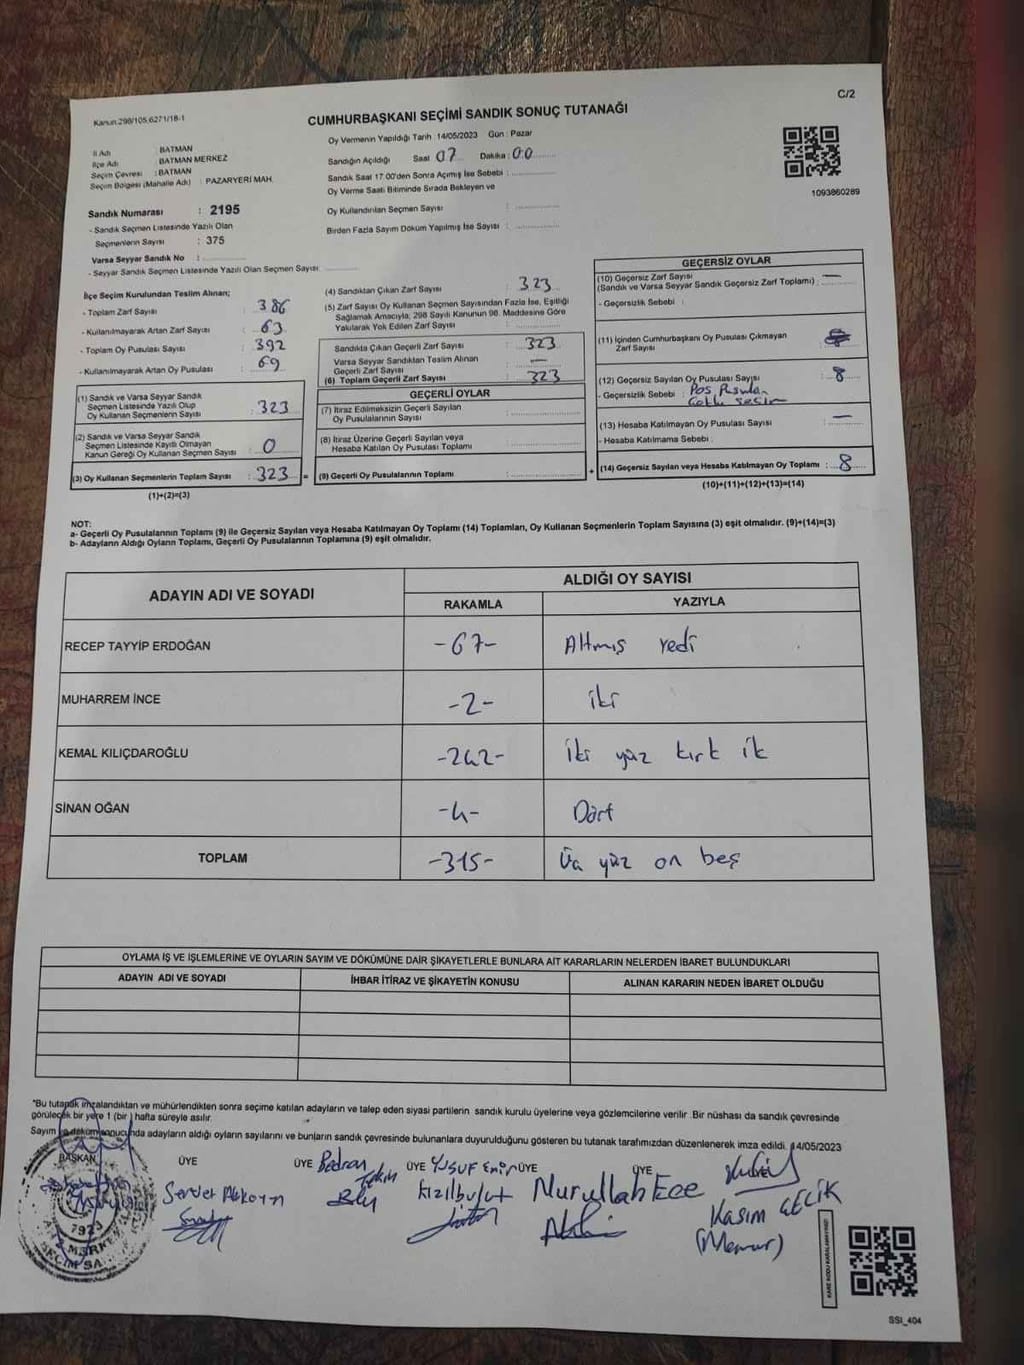 C/2
Kanun:298/105,6271/18-1
CUMHURBAŞKANI SEÇİMİ SANDIK SONUÇ TUTANAĞI
İl Adı : BATMAN
İlçe Adı : BATMAN MERKEZ
Seçim Çevresi : BATMAN
Seçim Bölgesi (Mahalle Adı) : PAZARYERİ MAH.
Oy Vermenin Yapıldığı Tarih :14/05/2023 Gün : Pazar
Sandığın Açıldığı Saat 07 Dakika : 00
Sandık Saat 17.00'den Sonra Açımış İse Sebebi :
Oy Verme Saati Bitiminde Sırada Bekleyen ve
Oy Kullandırılan Seçmen Sayısı :
Birden Fazla Sayım Döküm Yapılmış İse Sayısı :
1093860289
Sandık Numarası : 2195
- Sandık Seçmen Listesinde Yazılı Olan
Seçmenlerin Sayısı : 375
Varsa Seyyar Sandık No :
- Seyyar Sandık Seçmen Listesinde Yazılı Olan Seçmen Sayısı:
İlçe Seçim Kurulundan Teslim Alınan;
- Toplam Zarf Sayısı : 386
- Kullanılmayarak Artan Zarf Sayısı : 63
- Toplam Oy Pusulası Sayısı : 392
- Kullanılmayarak Artan Oy Pusulası : 69
(1) Sandık ve Varsa Seyyar Sandık
Seçmen Listesinde Yazılı Olup
Oy Kullanan Seçmenlerin Sayısı : 323
(2) Sandık ve Varsa Seyyar Sandık
Seçmen Listesinde Kayıtlı Olmayan
Kanun Gereği Oy Kullanan Seçmen Sayısı : 0
(3) Oy Kullanan Seçmenlerin Toplam Sayısı : 323 =
(1)+(2)=(3)
(4) Sandıktan Çıkan Zarf Sayısı : 323
(5) Zarf Sayısı Oy Kullanan Seçmen Sayısından Fazla İse, Eşitliği
Sağlamak Amacıyla; 298 Sayılı Kanunun 98. Maddesine Göre
Yakılarak Yok Edilen Zarf Sayısı :
Sandıkta Çıkan Geçerli Zarf Sayısı : 323
Varsa Seyyar Sandıktan Teslim Alınan
Geçerli Zarf Sayısı : —
(6) Toplam Geçerli Zarf Sayısı : 323
GEÇERLİ OYLAR
(7) İtiraz Edilmeksizin Geçerli Sayılan
Oy Pusulalarının Sayısı :
(8) İtiraz Üzerine Geçerli Sayılan veya
Hesaba Katılan Oy Pusulası Toplamı :
(9) Geçerli Oy Pusulalarının Toplamı : +
GEÇERSİZ OYLAR
(10) Geçersiz Zarf Sayısı —
(Sandık ve Varsa Seyyar Sandık Geçersiz Zarf Toplamı) :
- Geçersizlik Sebebi :
(11) İçinden Cumhurbaşkanı Oy Pusulası Çıkmayan
Zarf Sayısı :
(12) Geçersiz Sayılan Oy Pusulası Sayısı : 8
- Geçersizlik Sebebi :
(13) Hesaba Katılmayan Oy Pusulası Sayısı : —
- Hesaba Katılmama Sebebi :
(14) Geçersiz Sayılan veya Hesaba Katılmayan Oy Toplamı : 8
(10)+(11)+(12)+(13)=(14)
NOT:
a- Geçerli Oy Pusulalarının Toplamı (9) ile Geçersiz Sayılan veya Hesaba Katılmayan Oy Toplamı (14) Toplamları, Oy Kullanan Seçmenlerin Toplam Sayısına (3) eşit olmalıdır. (9)+(14)=(3)
b- Adayların Aldığı Oyların Toplamı, Geçerli Oy Pusulalarının Toplamına (9) eşit olmalıdır.
ADAYIN ADI VE SOYADI
ALDIĞI OY SAYISI
RAKAMLA YAZIYLA
RECEP TAYYİP ERDOĞAN -67- Altmış yedi
MUHARREM İNCE -2- iki
KEMAL KILIÇDAROĞLU -242- iki yüz kırk ik
SİNAN OĞAN -4- Dört
TOPLAM -315- Üç yüz on beş
OYLAMA İŞ VE İŞLEMLERİNE VE OYLARIN SAYIM VE DÖKÜMÜNE DAİR ŞİKAYETLERLE BUNLARA AİT KARARLARIN NELERDEN İBARET BULUNDUKLARI
ADAYIN ADI VE SOYADI İHBAR İTİRAZ VE ŞİKAYETİN KONUSU ALINAN KARARIN NEDEN İBARET OLDUĞU
*Bu tutanak imzalandıktan ve mühürlendikten sonra seçime katılan adayların ve talep eden siyasi partilerin sandık kurulu üyelerine veya gözlemcilerine verilir .Bir nüshası da sandık çevresinde
görülecek bir yere 1 (bir ) hafta süreyle asılır.
Sayım ve döküm sonucunda adayların aldığı oyların sayılarını ve bunların sandık çevresinde bulunanlara duyurulduğunu gösteren bu tutanak tarafımızdan düzenlenerek imza edildi. 14/05/2023
BAŞKAN ÜYE ÜYE ÜYE ÜYE ÜYE
Bedran
YUSUF Emir
Kızılbulut
Nurullah Ece
Kasım ÇELİK
(Memur)
KARE KODU KARALAMAYINIZ!
SSI_404